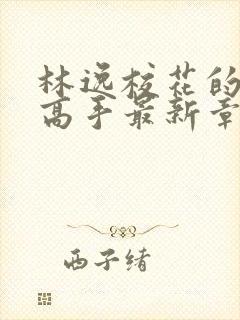 林逸校花的
高手最新章
西子绪